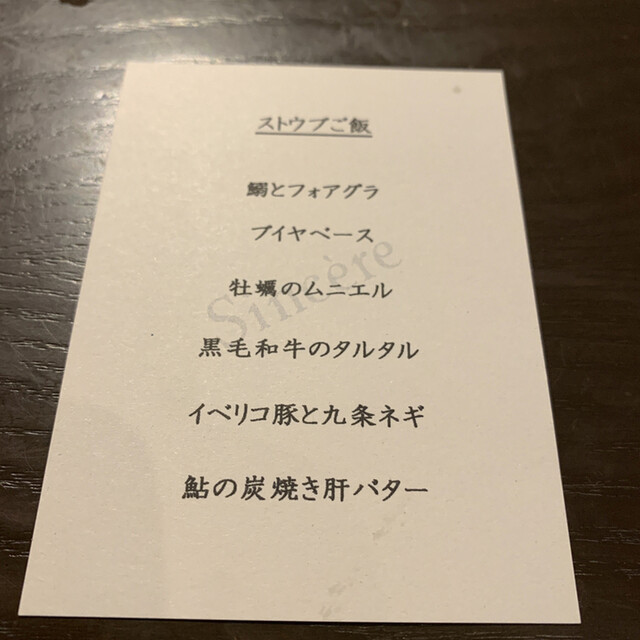 ストウブご飯
鰯とフォアグラ
ブイヤベース
Sincère
牡蠣のムニエル
黒毛和牛のタルタル
イベリコ豚と九条ネギ
鮎の炭焼き肝バター